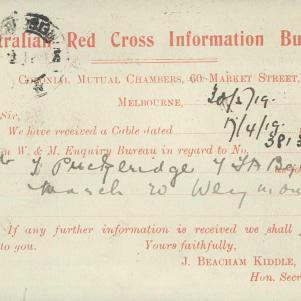 tralian Red Cross Information Bu
Colonial Mutual Chambers, 60 Market Street,
Melbourne, 20/5/19.
Sir,
We have received a Cable dated 17/4/19.
W. & M. Enquiry Bureau in regard to No. 3813
Puckeridge
March 20 Weymou
If any further information is received we shall
to you. Yours faithfully,
J. BEACHAM KIDDLE,
Hon. Secr